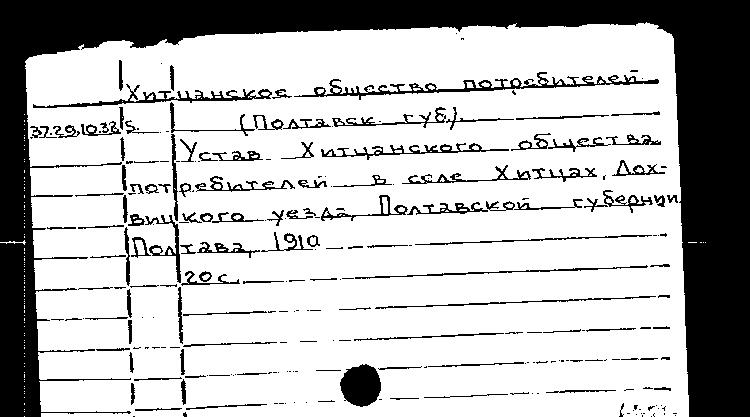 Хитцанское общество потребителей
37.29.10.38/5. (Полтавск губ.).
Устав Хитцанского общества
потребителей в селе Хитцах, Лох-
вицкого уезда, Полтавской губернии
Полтава, 1910
20 с.